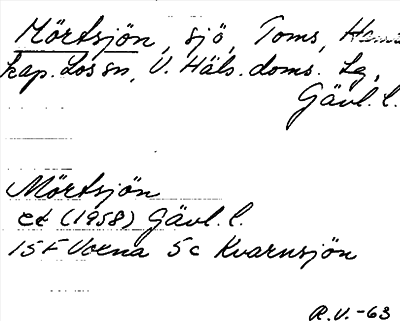 Mörtsjön, sjö, Toms, Hamra
kap. Los sn, V. Häls. doms. lg,
Gävl. l.
Mörtsjön
ek (1958) Gävl. l.
15 F Voxna 5c Kvarnsjön
R.V. -63